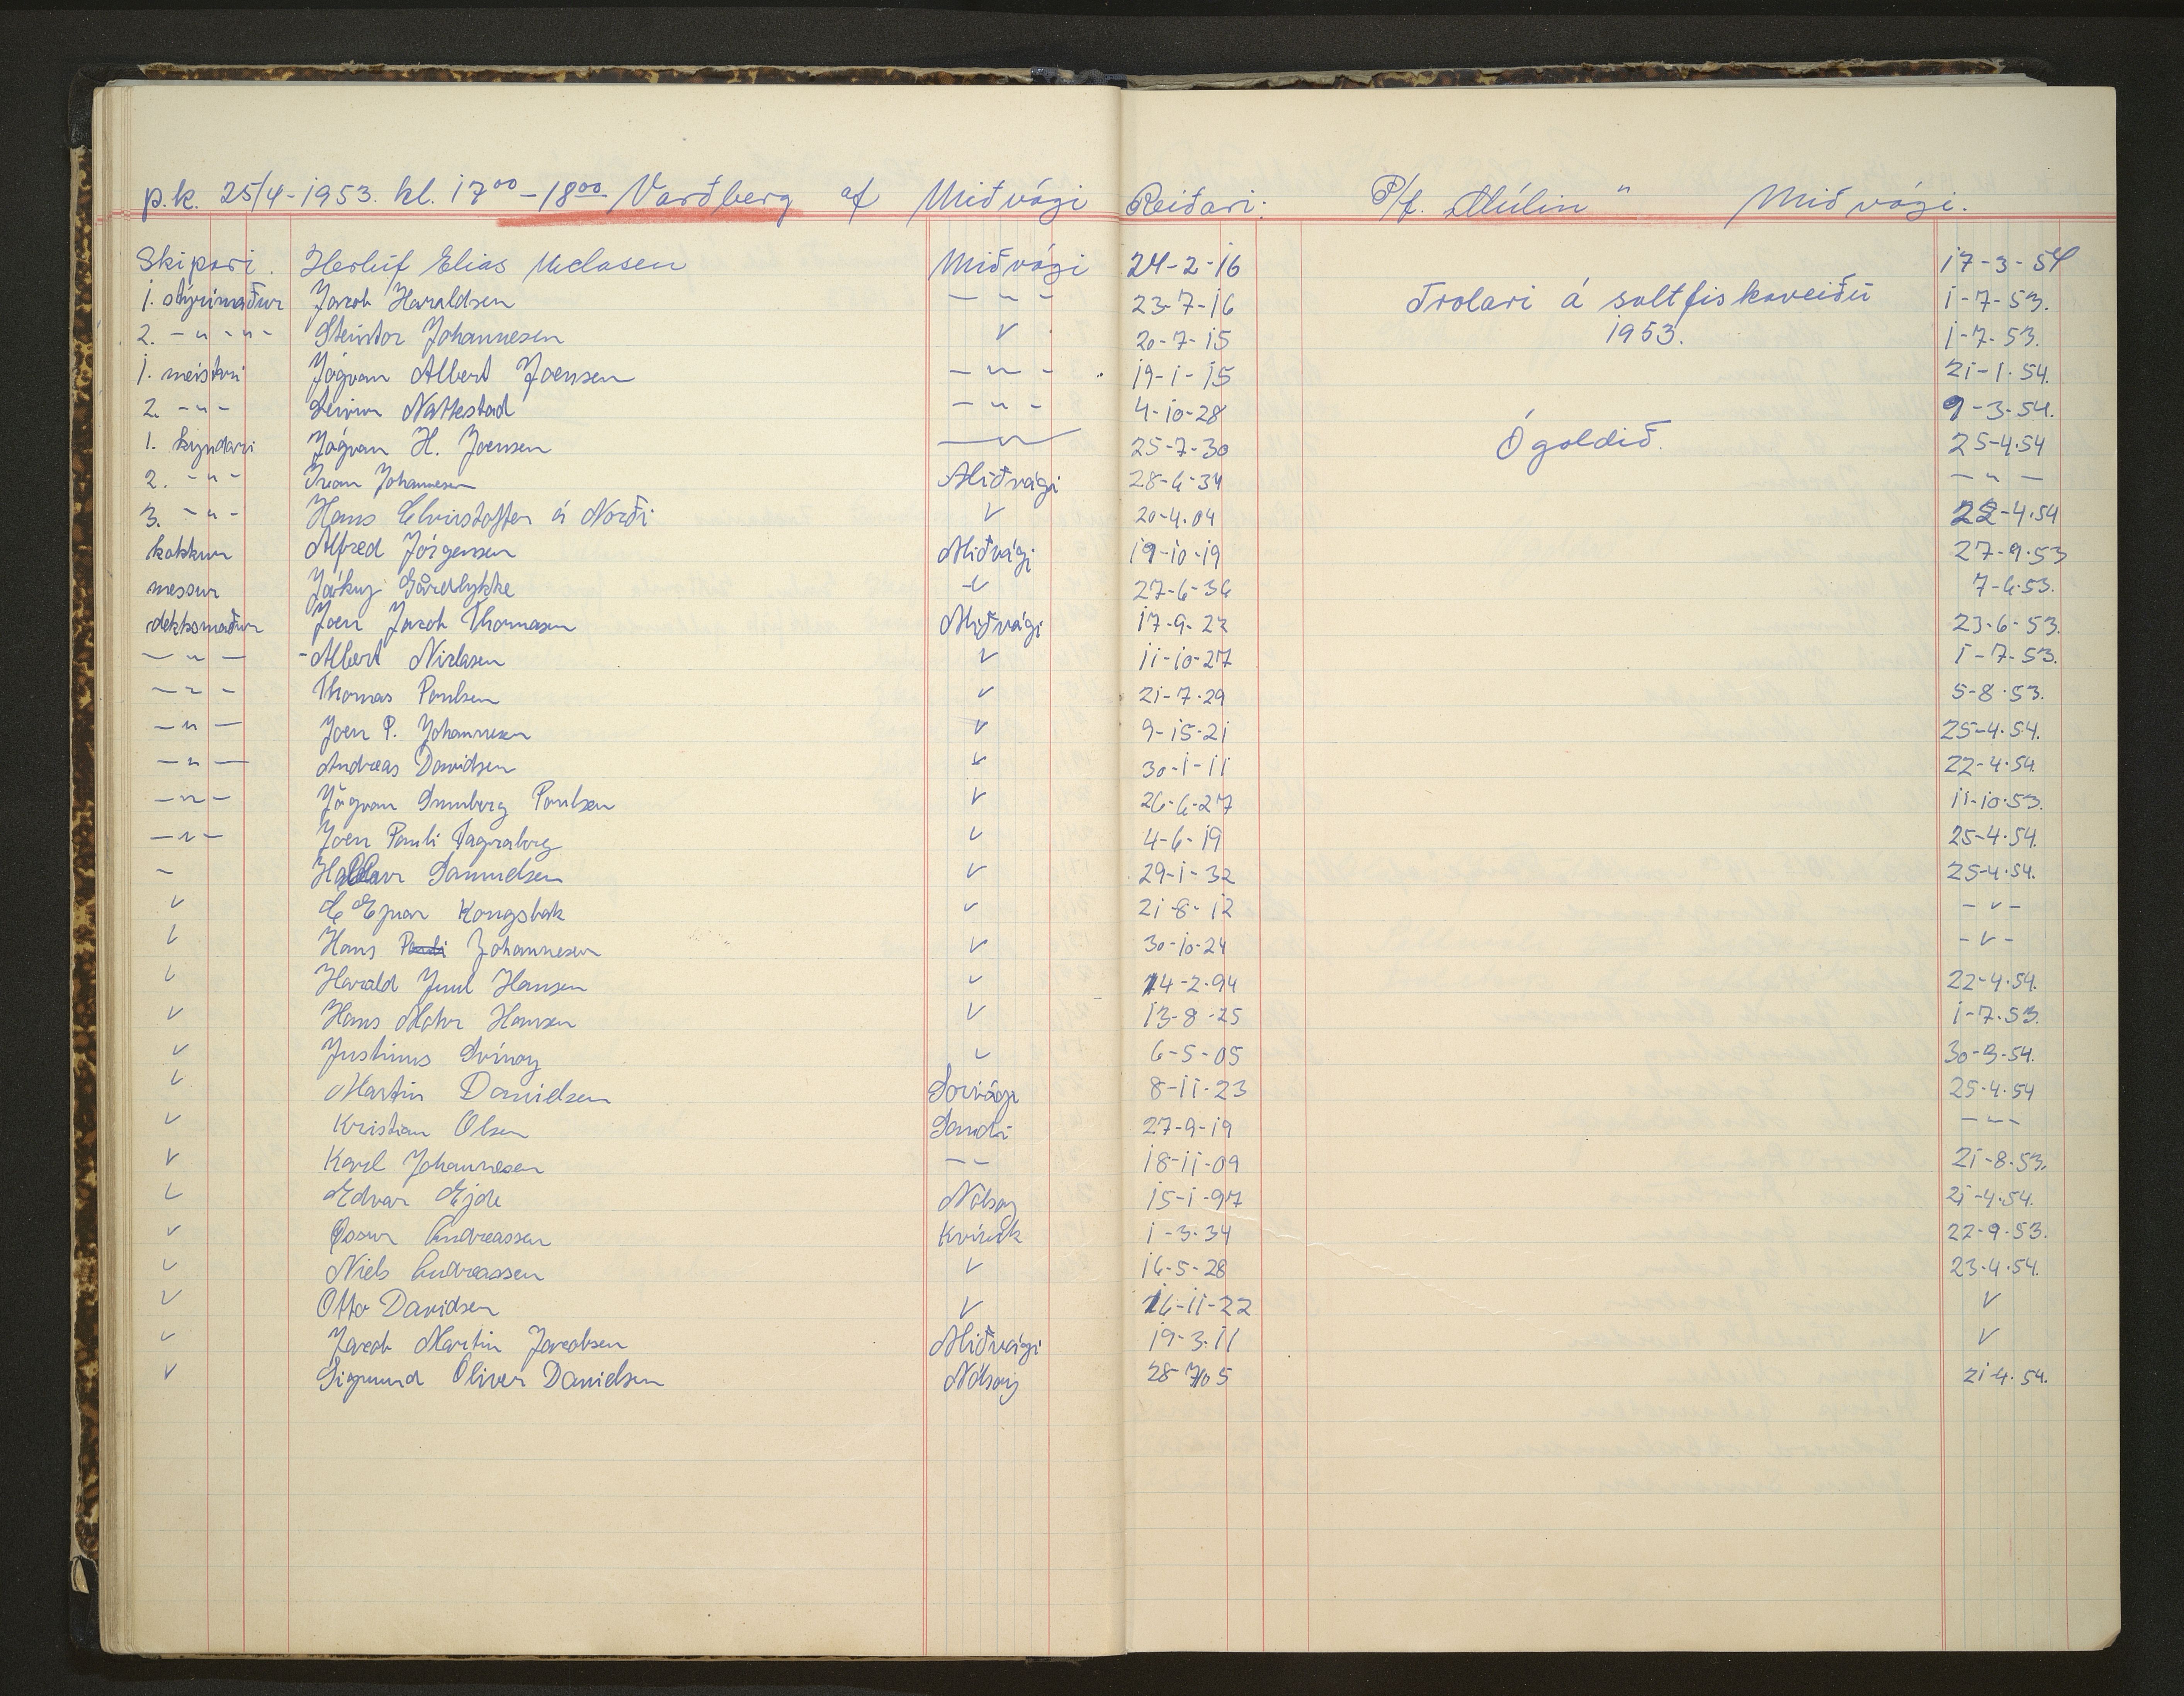 p.k. 25/4-1953. kl. 17⁰⁰-18⁰⁰ Varðberg af Miðvági Reiðari: P/f. „Múlin" Miðvági.
Skipari. Herluf Elias Niclasen Miðvági 24-2-16 17-3-54
1. stýrimaður Jacob Haraldsen -"- 23-7-16 Trolari á saltfiskaveiðu 1-7-53.
2. -"-"- Steintor Johannesen v 20-7-15 1953. 1-7-53.
1. meistari Jógvan Albert Joensen -"- 19-1-15 21-1-54.
2. -"- Nattestad -"- 4-10-28 9-3-54.
1. kyndari Jógvan H. Joensen -"- 25-7-30 Ógoldið. 25-4-54
2. -"- Johannesen Miðvági 28-6-34 -"-
3. -"- Hans á Norði v 20-4.04 22-4.54
kokkur Alfred Jörgensen Miðvági 19-10-19 27-9.53
messur Jákup Gårdlykke v 27-6-36 7-6.53.
dekksmaður Joen Jacob Thomasen Miðvági 17-9-22 23-6-53.
-"- Albert Niclasen v 11-10-27 1-7-53.
-"- Thomas Poulsen v 21-7.29 5-8.53.
-"- Joen P. Johannesen v 9-15-21 25-4.54.
-"- Andreas Davidsen v 30-1-11 22-4.54.
-"- Jógvan Sumberg Poulsen v 26-6-27 11-10.53.
-"- Joen Pauli Fagraberg v 4-6-19 25-4.54.
- Hallur Samuelsen v 29-1-32 25-4.54.
v Ejnar Kongsbak v 21-8-12 -v-
v Hans Pauli Johannesen v 30-10-24 -v-
v Harald Juul Hansen v 14-2-94 22-4.54.
v Hans Mohr Hansen v 13-8-25 1-7.53.
v Justinus Svínoy v 6-5-05 30-3-54.
v Martin Danielsen Sørvági 8-11-23 25-4.54
v Kristian Olsen Sandi 27-9-19 ---
v Karl Johannesen -- 18-11-09 21-8.53.
v Edvar Ejde Nólsoy 15-1-97 21-4.54.
v Øssur Andreassen Kvívík 1-3-34 22-9.53.
v Niels Andreassen v 16-5-28 23-4.54.
v Otto Davidsen v 16-11-22 v
v Jacob Martin Jacobsen Miðvági 19-3-11 v
v Sigmund Oliver Danielsen Nólsoy 28- 21-4.54.